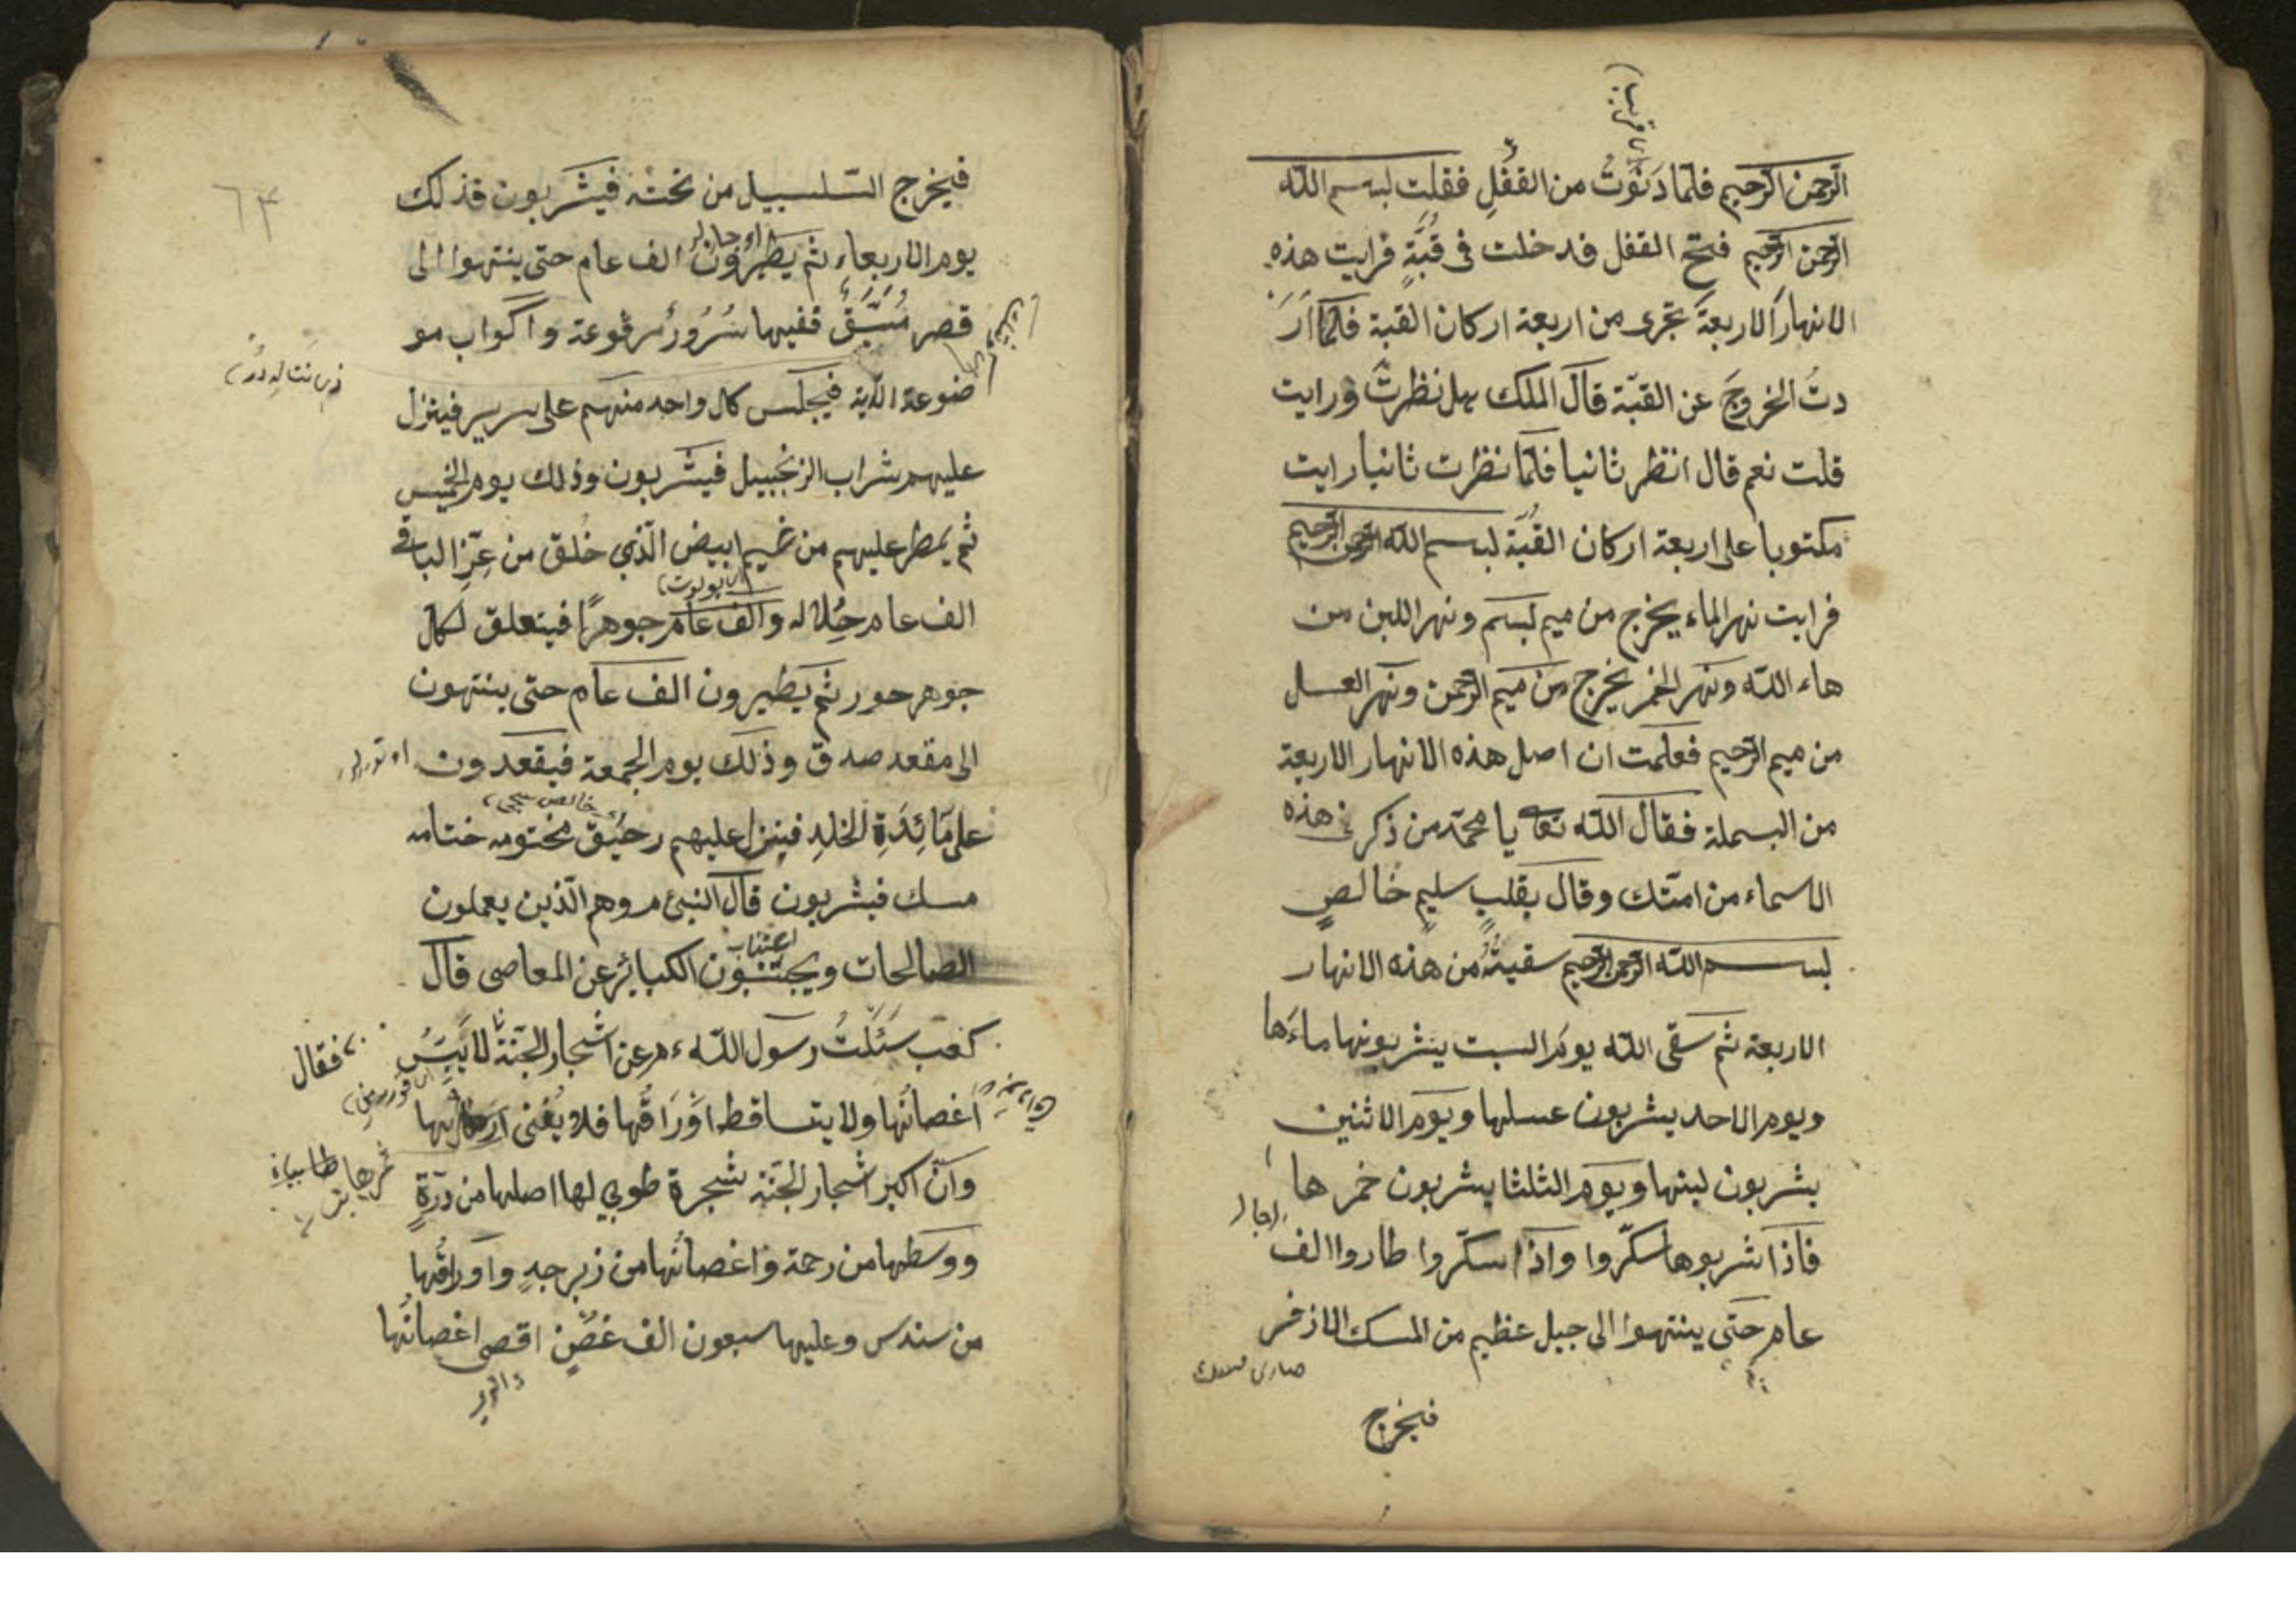 الرحمن الرحيم فلمّا دَنَوْتُ من القفْلِ فقلت بسم الله
الرحمن الرحيم فتح القفل فدخلت فى قُبَّةٍ فرايت هذه
الانهارَ الاربعةَ تجرى من اربعة اركان القبة فلمّا اَرَ
دتُ الخروجَ عن القبّة قال الملك هل نظرتَ ورايت
قلت نعم قال انظر ثانيا فلمّا نظرت ثانيا رايت
مكتوبا على اربعة اركان القُبّة بسم الله الرحمن الرحيم
فرايت نهر الماء يخرج من ميم بسم ونهر اللبن من
هاء الله ونهر الخمر يخرج من ميم الرحمن ونهر العسل
من ميم الرحيم فعلمت ان اصل هذه الانهار الاربعة
من البسملة فقال الله تعا يا محمّد من ذكرنى هذه
الاسماء من امّتك وقال بقلبٍ سليمٍ خالصٍ
بسم الله الرحمن الرحيم سقيتُهُ من هذه الانهار
الاربعة ثم سقى الله يوم السبت يشربونها ماءَها
ويوم الاحد يشربون عسلها ويوم الاثنين
يشربون لبنها ويوم الثلثا يشربون خمرها
فاذا شربوها سكّروا واذا سكّروا طاروا الف
عام حتى ينتهوا الى جبل عظيم من المسك الاذفر
فيخرج
٦٣
فيخرج السّلسبيل من تحته فيشربون فذلك
يوم الاربعاءِ ثم يطيرون الف عام حتى ينتهوا الى
قصر ففيها سُرُورٌ مرفوعة واكواب مو
ضوعة الآية فيجلس كل واحد منهم على سرير فينزل
عليهم شراب الزنجبيل فيشربون وذلك يوم الخميس
ثم يمطر عليهم من غيم ابيض الّذي خُلق من عِزِّ الباقى
الف عام حُلاله والف عام جوهرًا فيتعلق لكل
جوهر حور ثم يطيرون الف عام حتى ينتهون
الى مقعد صدق وذلك يوم الجمعة فيقعدون
على مَائِدَةِ الخلدِ فينزل عليهم رحيق مختومه ختامه
مسك فيشربون قال النبىّ م وهم الّذين يعملون
الصالحات ويجتنبون الكبائر عن المعاصى قال
كعب سَئَلْتُ رسول الله ءم عن اشجار الجنّة لا يَيْبَسُ
فقال
اغصانُها ولا يتساقط اوْرَاقُها فلا يُفنى
وانّ اكبر اشجار الجنّة شجرة طوبي لها اصلها من درّةٍ
ووسطها من رحمة واغصانُها من زبرجدٍ واوراقُها
من سندس وعليها سبعون الف غصْنٍ اقصى اغصانُها